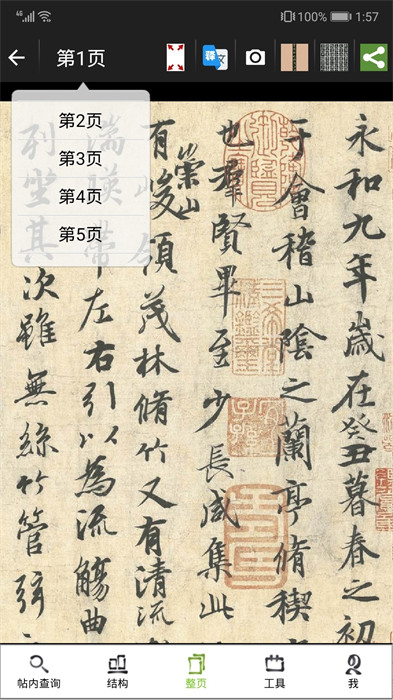 4G 100% 1:57
第1页
第2页
第3页
第4页
第5页
永和九年歲在癸丑暮春之初
于會稽山陰之蘭亭脩稧
也羣賢畢至少長咸集此
崇山
有峻領茂林脩竹又有清流
湍暎帶左右引以為流觴曲
列坐其次雖無絲竹管弦
帖内查询
结构
整页
工具
我